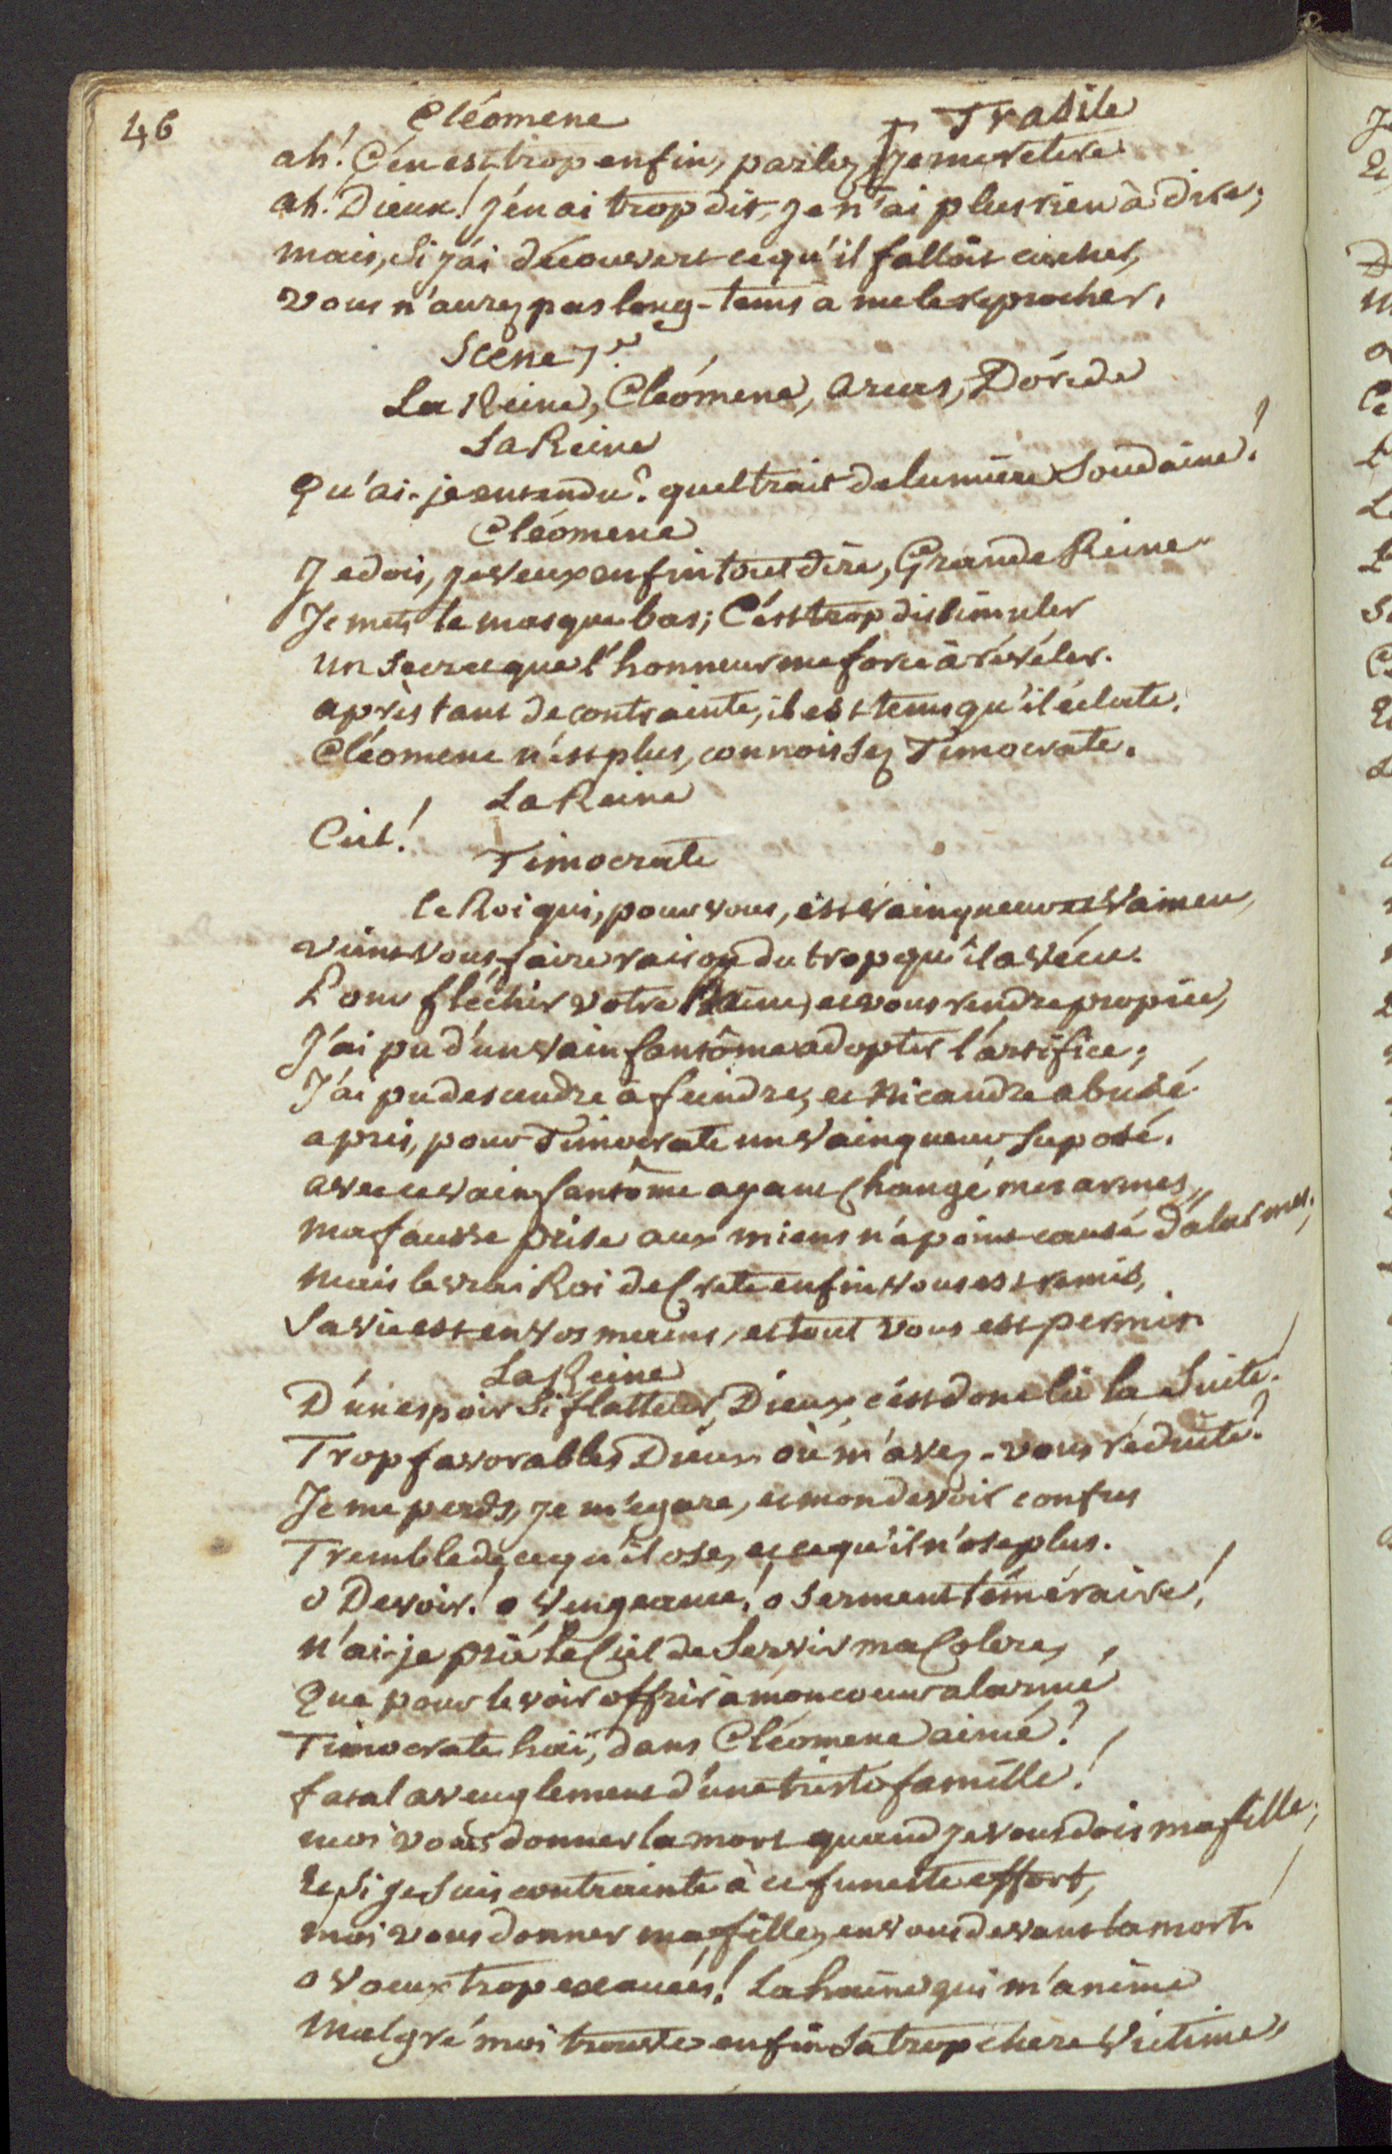 46
Cléomene Trasile
ah! C'en est trop enfin, parlez [ Je me retire
ah! Dieux! J'en ai trop dit, Je n'ai plus rien à dire;
mais, si j'ai découvert ce qu'il falloit cacher,
vous n'aurez pas long-tems à me le reprocher.
Scene 7e.
La Reine, Cléomene, Arcas, Doride
La Reine
Qu'ai-je entendu? quel trait de lumiere Soudaine!
Cléomene
Je dois, je veux enfin tout dire, Grande Reine
Je mets le masque bas; C'est trop dissimuler
un secret que l'honneur me force à révéler.
après tant de contrainte, il est tems qu'il éclate.
Cléomene n'est plus, connoissez Timocrate.
La Reine
Ciel!
Timocrate
le Roi qui, pour vous, est vainqueur et vaincu,
vient vous faire raison du trop qu'il a vécu.
Pour fléchir votre Haine, et vous rendre propice,
J'ai pu d'un vain fantôme adopter l'artifice;
J'ai pu descendre à feindre, et Nicandre abusé
a pris, pour Timocrate un vainqueur suposé.
avec ce vain fantôme ayant changé mes armes,
ma fausse prise aux miens n'a point causé d'alarmes;
Mais le vrai Roi de Crete enfin vous est remis,
Sa vie est en vos mains, et tout vous est permis
La Reine
D'un espoir si flatteur, Dieux c'est donc là la Suite!
Trop favorables Dieux où m'avez-vous réduite?
Je me perds, je m'égare, et mon devoir confus
Tremble de ce qu'il ose, et ce qu'il n'ose plus.
o Devoir! o vengeance! o serment téméraire!
n'ai-je prié le Ciel de Servir ma Colere,
Que pour le voir offrir à mon coeur alarmé
Timocrate haï, dans Cléomene aimé?
fatal aveuglement d'une triste famille!
moi vous donner la mort quand je vous dois ma fille;
Et si je suis contrainte à ce funeste effort,
moi vous donner ma fille, en vous devant la mort!
o voeux trop exaucés! La haine qui m'anime
Malgré moi trouve enfin sa trop chere Victime,